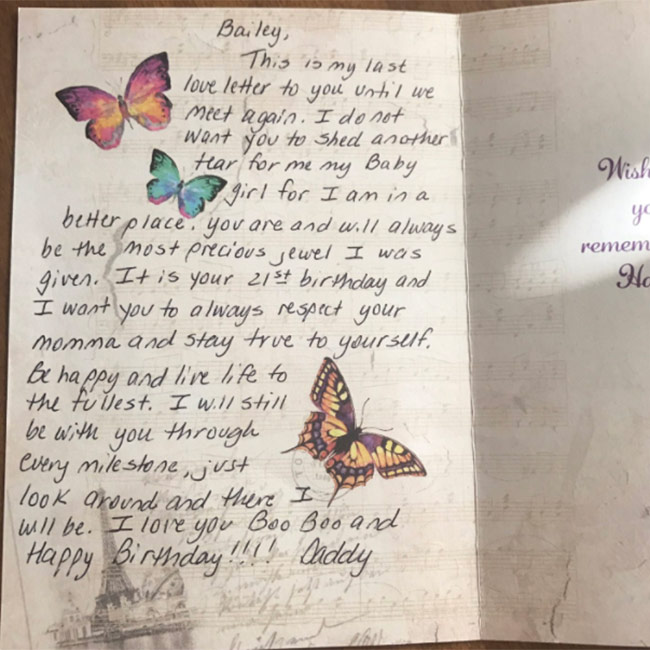 Bailey,
This is my last
love letter to you until we
meet again. I do not
want you to shed another
tear for me my Baby
girl for I am in a
better place. you are and will always
be the most precious jewel I was
given. It is your 21st birthday and
I want you to always respect your
momma and stay true to yourself.
Be happy and live life to
the fullest. I will still
be with you through
every milestone, just
look around and there I
will be. I love you Boo Boo and
Happy Birthday!!!! Daddy
Wish
yo
remem
Ha